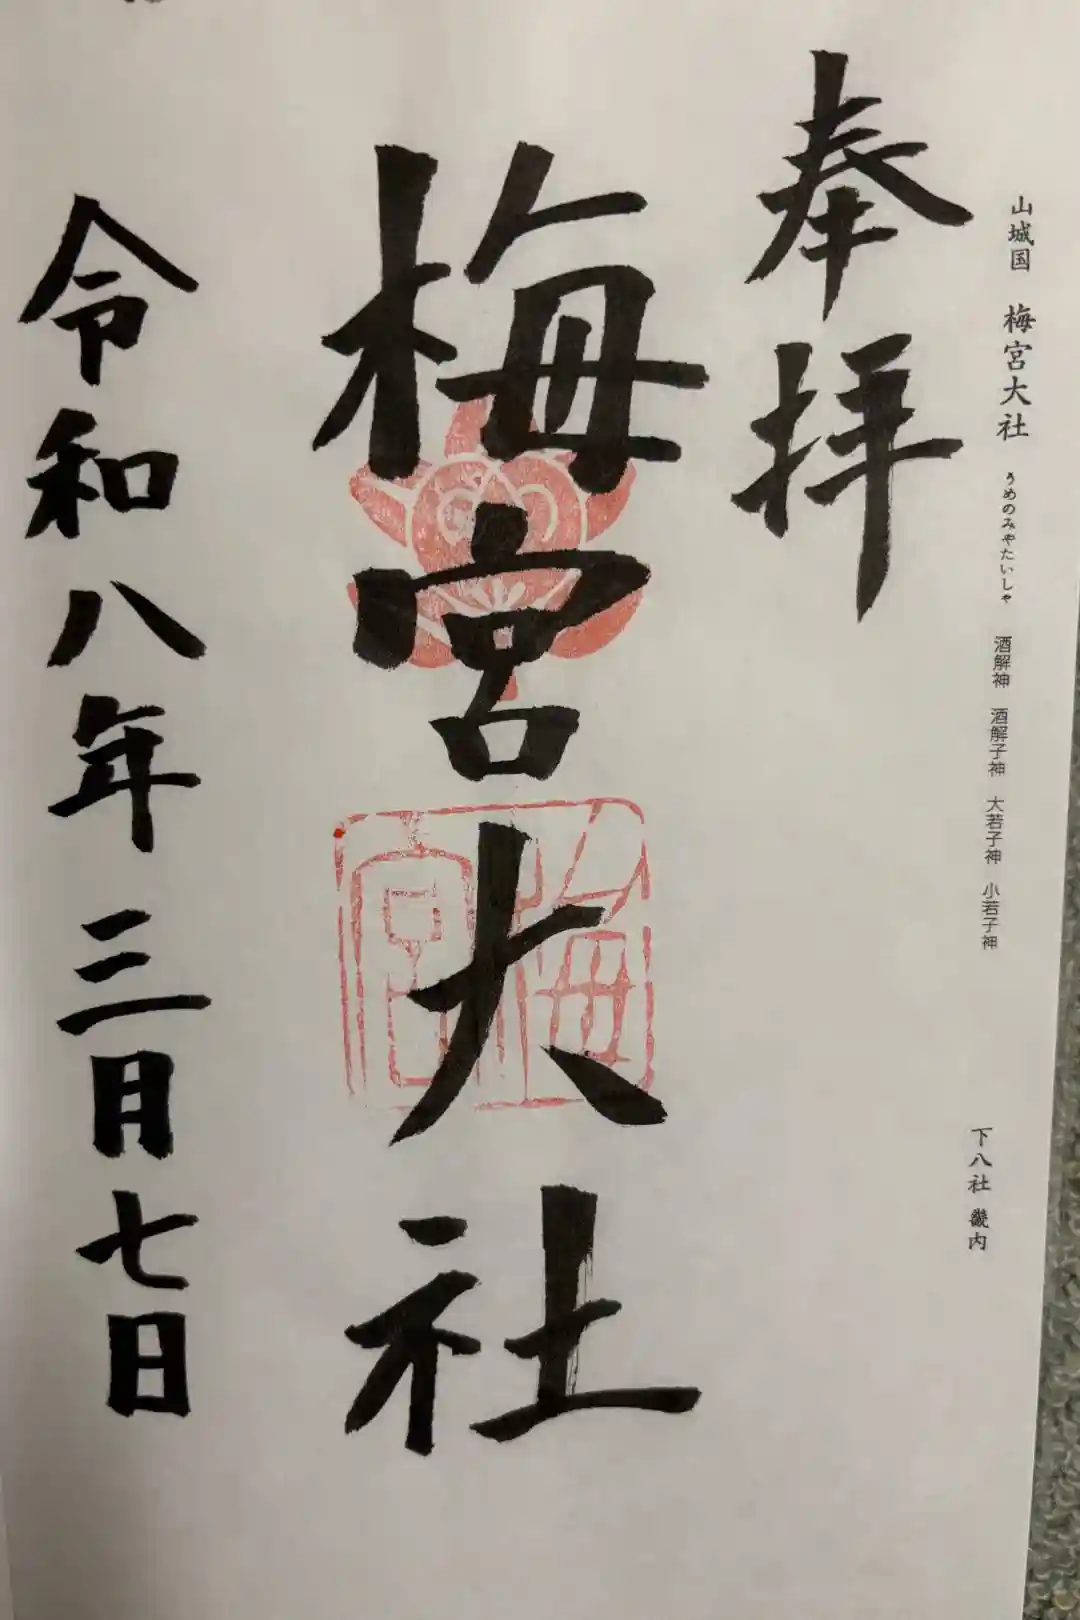 山城国 梅宮大社 うめのみやたいしゃ 酒解神 酒解子神 大若子神 小若子神 下八社 畿内
奉拝
梅宮大社
梅宮
令和八年三月七日